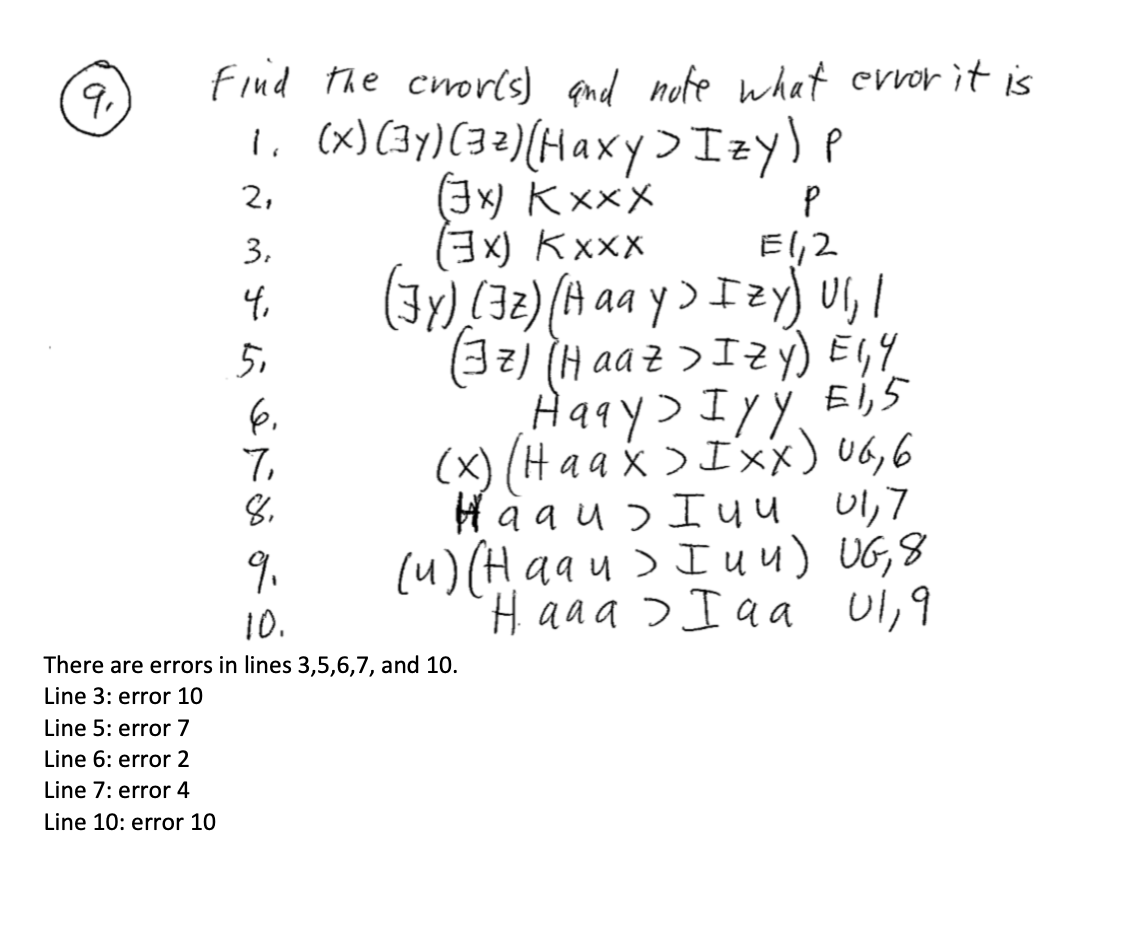 9. Find the error(s) and note what error it is
1. (x)(∃y)(∃z)(Haxy⊃Izy) P
2. (∃x) Kxxx P
3. (∃x) Kxxx EI,2
4. (∃y)(∃z)(Haay⊃Izy) UI,1
5. (∃z)(Haaz⊃Izy) EI,4
6. Haay⊃Iyy EI,5
7. (x)(Haax⊃Ixx) UG,6
8. Haau⊃Iuu UI,7
9. (u)(Haau⊃Iuu) UG,8
10. Haaa⊃Iaa UI,9
There are errors in lines 3,5,6,7, and 10.
Line 3: error 10
Line 5: error 7
Line 6: error 2
Line 7: error 4
Line 10: error 10